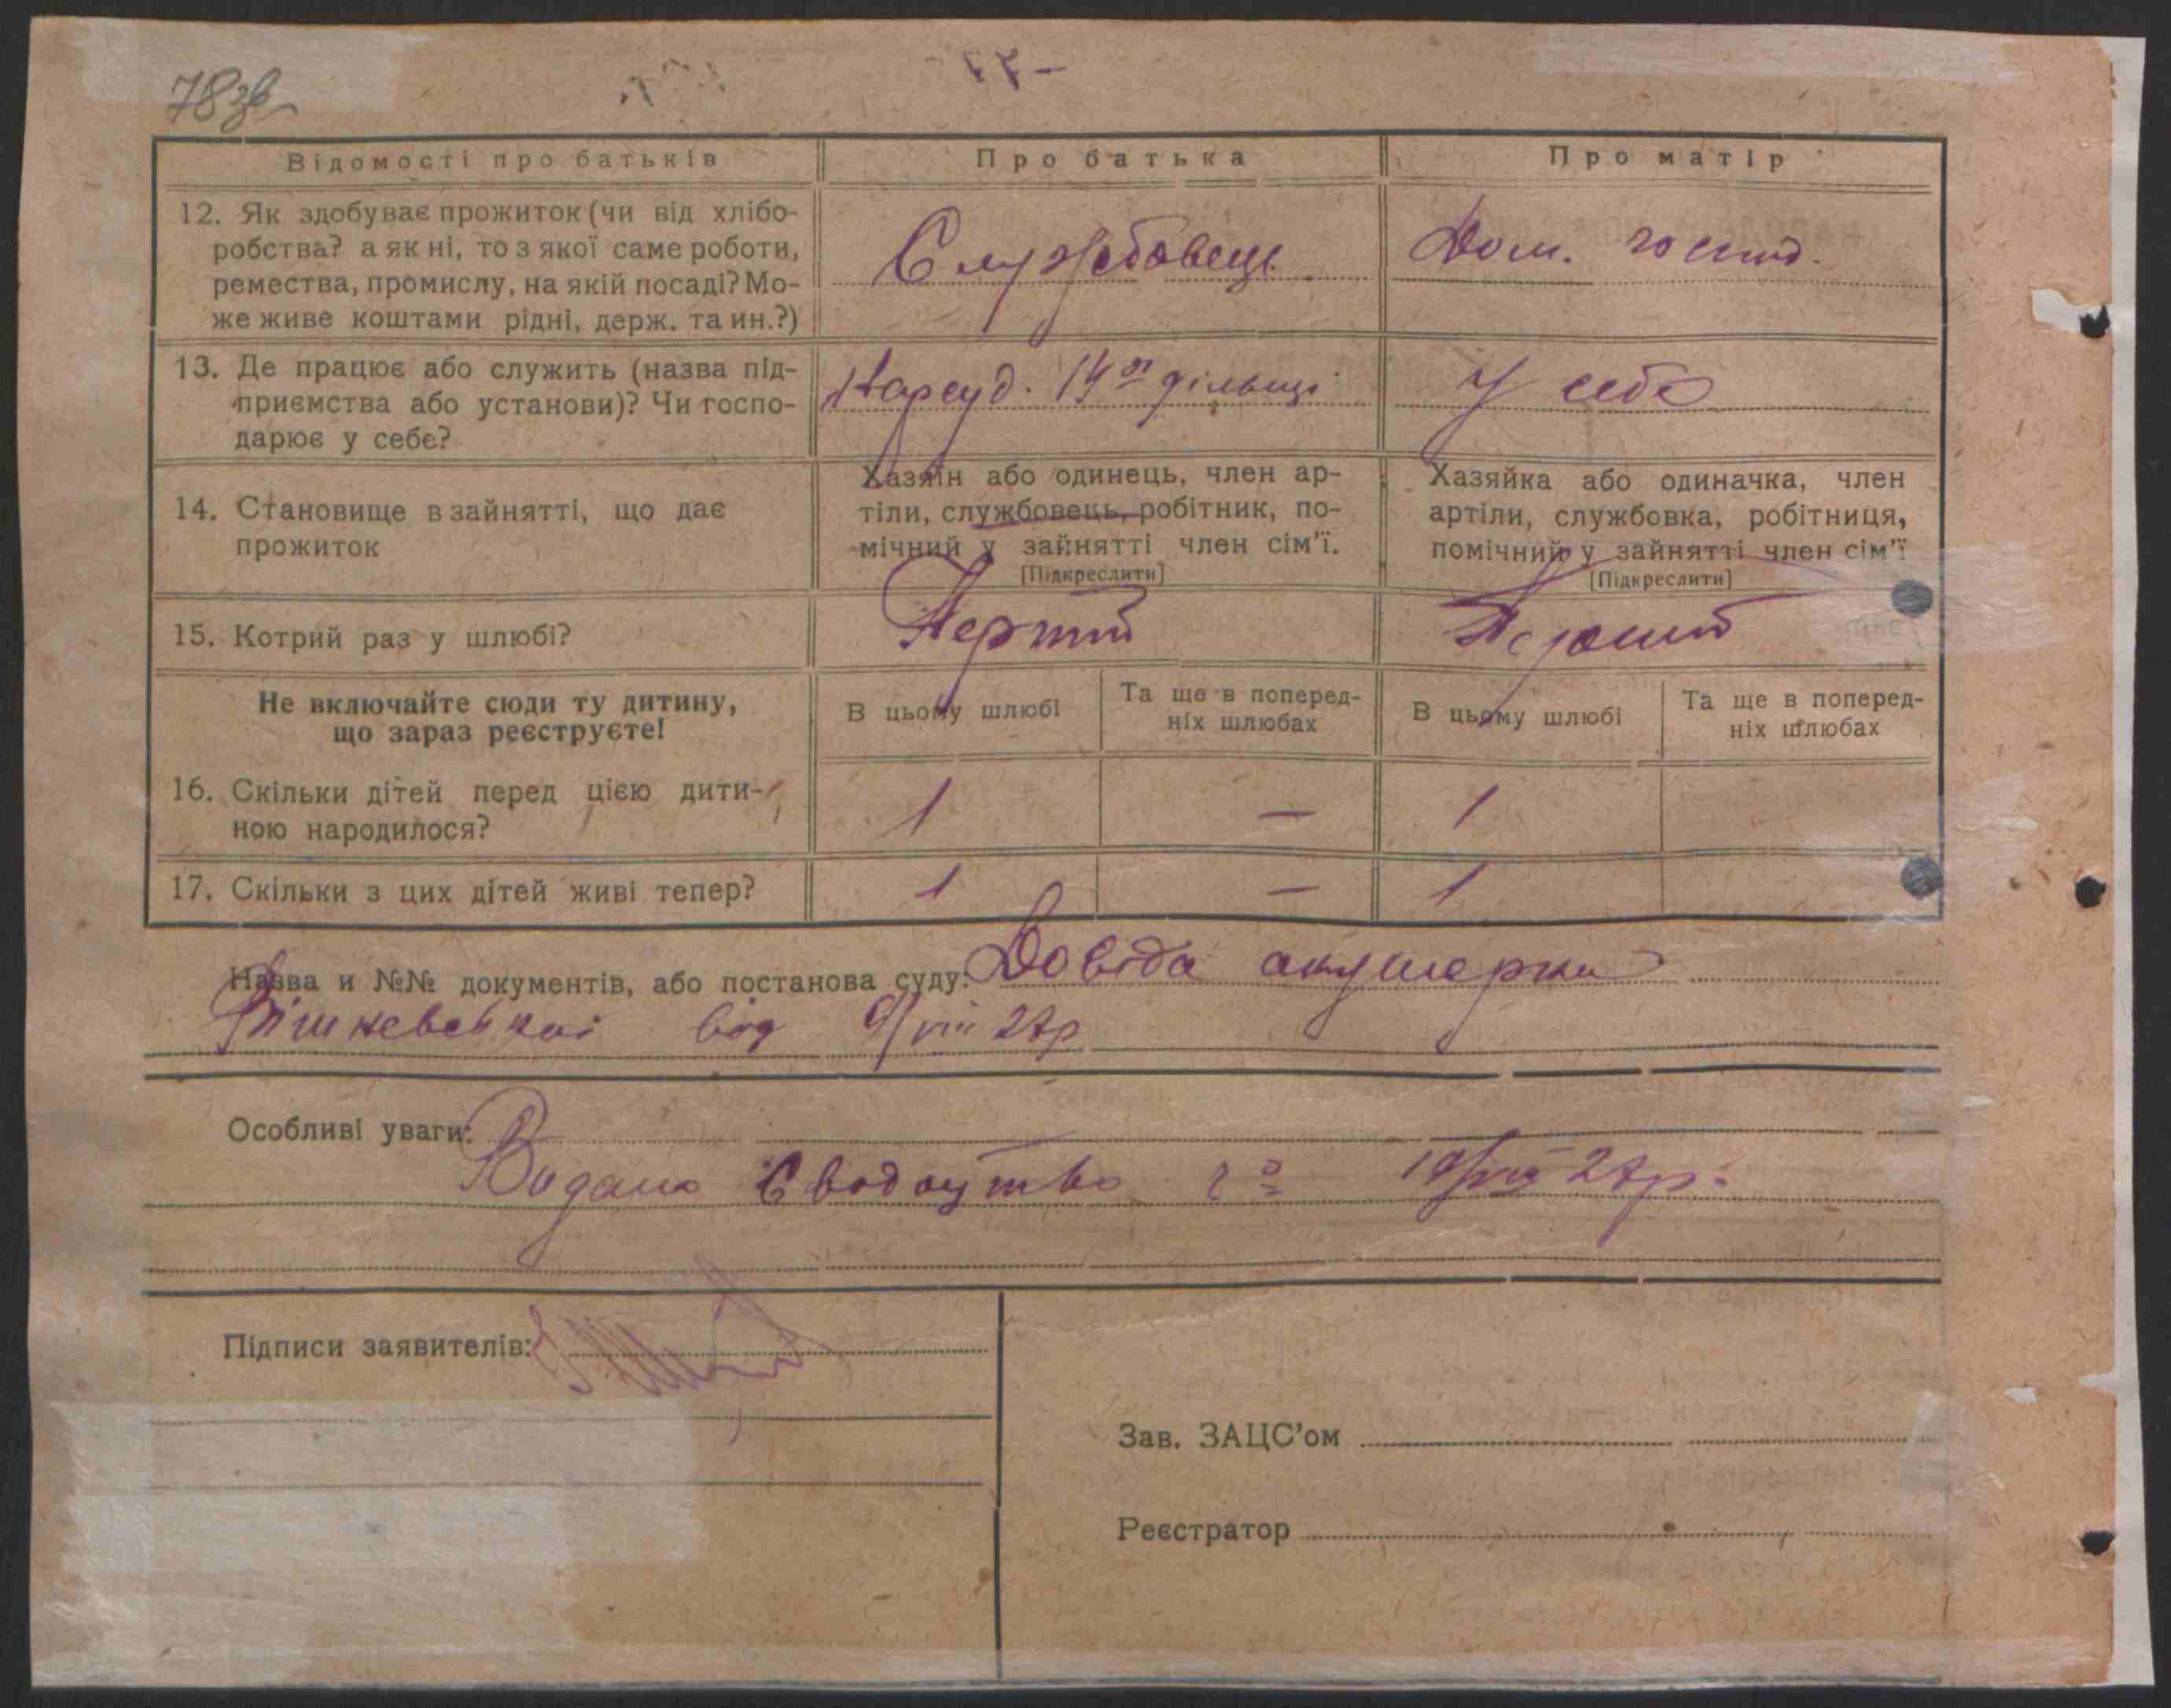 78зв
Відомості про батьків
Про батька
Про матір
12. Як здобуває прожиток (чи від хлібо-
робства? а як ні, то з якої саме роботи,
ремества, промислу, на якій посаді? Мо-
же живе коштами рідні, держ. та ин.?)
Службовець
Дом. госпід.
13. Де працює або служить (назва під-
приємства або установи)? Чи госпо-
дарює у себе?
Нарсуд. 14ої дільниці
У себе
14. Становище в зайнятті, що дає
прожиток
Хазяїн або одинець, член ар-
тіли, службовець, робітник, по-
мічний у зайнятті член сім'ї.
[Підкреслити]
Хазяйка або одиначка, член
артіли, службовка, робітниця,
помічний у зайнятті член сім'ї
[Підкреслити]
15. Котрий раз у шлюбі?
Перший
Перший
Не включайте сюди ту дитину,
що зараз реєструєте!
В цьому шлюбі
Та ще в поперед-
ніх шлюбах
В цьому шлюбі
Та ще в поперед-
ніх шлюбах
16. Скільки дітей перед цією дити-
ною народилося?
1
—
1
17. Скільки з цих дітей живі тепер?
1
—
1
Назва и №№ документів, або постанова суду: Довідка акушерки
від 9/VIII 27р
Особливі уваги:
Видано Свідоцтво 19/VIII 27р.
Підписи заявителів:
Зав. ЗАЦС'ом
Реєстратор